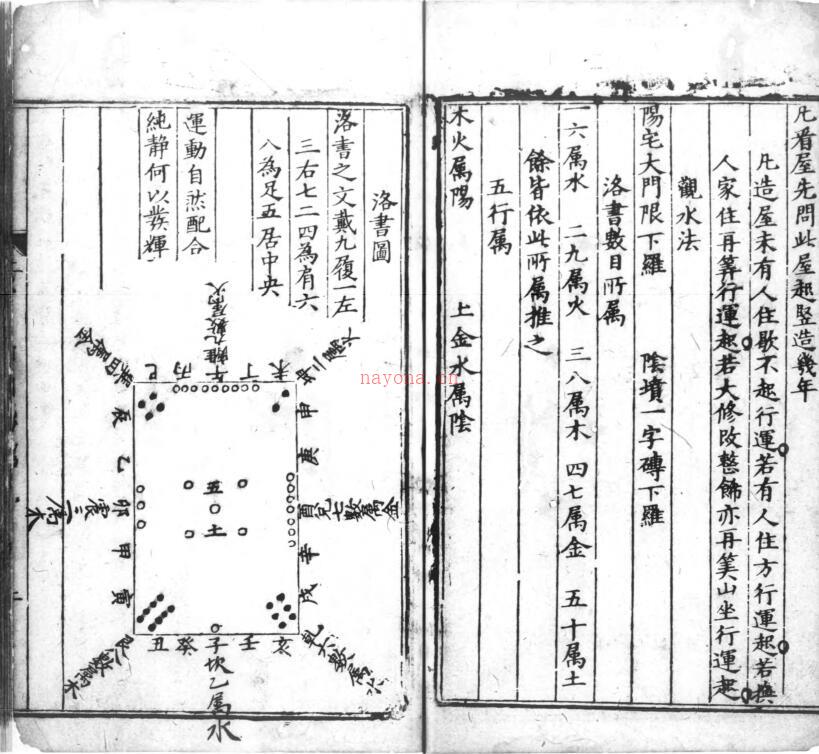 凡看屋先問此屋起竪造幾年
凡造屋未有人住歇不起行運若有人住方行運起若撫
人家住再筭行運起若大修改整飾亦再筭山坐行運起
觀水法
陽宅大門限下羅 陰墳一字磚下羅
洛書數目所属
一六属水 二九属火 三八属木 四七属金 五十属土
餘皆依此所属推之
五行属
木火属陽 土金水属陰
洛書圖
洛書之文戴九履一左
三右七二四為肩六
八為足五居中央
運動自然配合
純静何以發輝
午離九數属火
巳 丙 丁 未
坤二
申
庚
酉兌七數属金
辛
戌
乾六數属水
亥
壬
子坎乙属水
癸
丑
艮八數属木
寅
甲
卯震三属木
乙
辰
五
土
nayona.cn